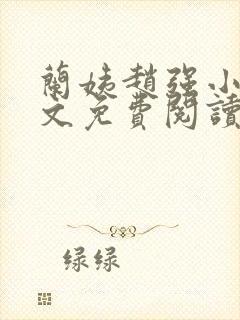 蘭姨趙強小
文免費閱讀
绿绿